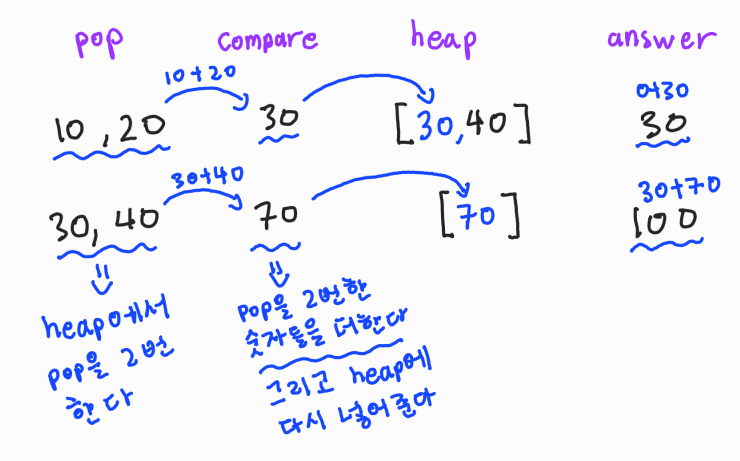 pop compare heap answer
10+20 0+30
10 , 20 30 [30,40] 30
30+40 30+70
30, 40 70 [70] 100
heap에서
pop을 2번
한다
pop을 2번한
숫자들을 더한다
그리고 heap에
다시 넣어준다